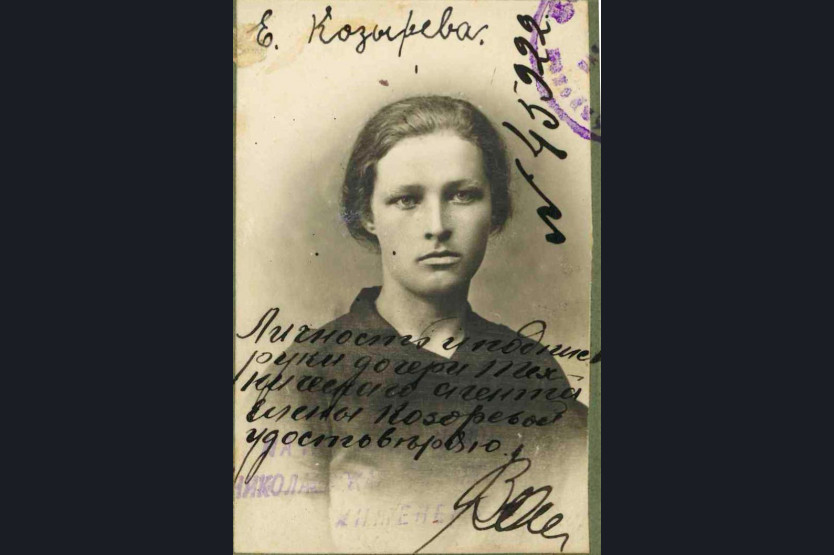 Е. Козырева.
N 45922
Личность и подпись
руки дочери Тех-
ническаго агента
Елены Козыревой
удостовѣряю.
НИКОЛА